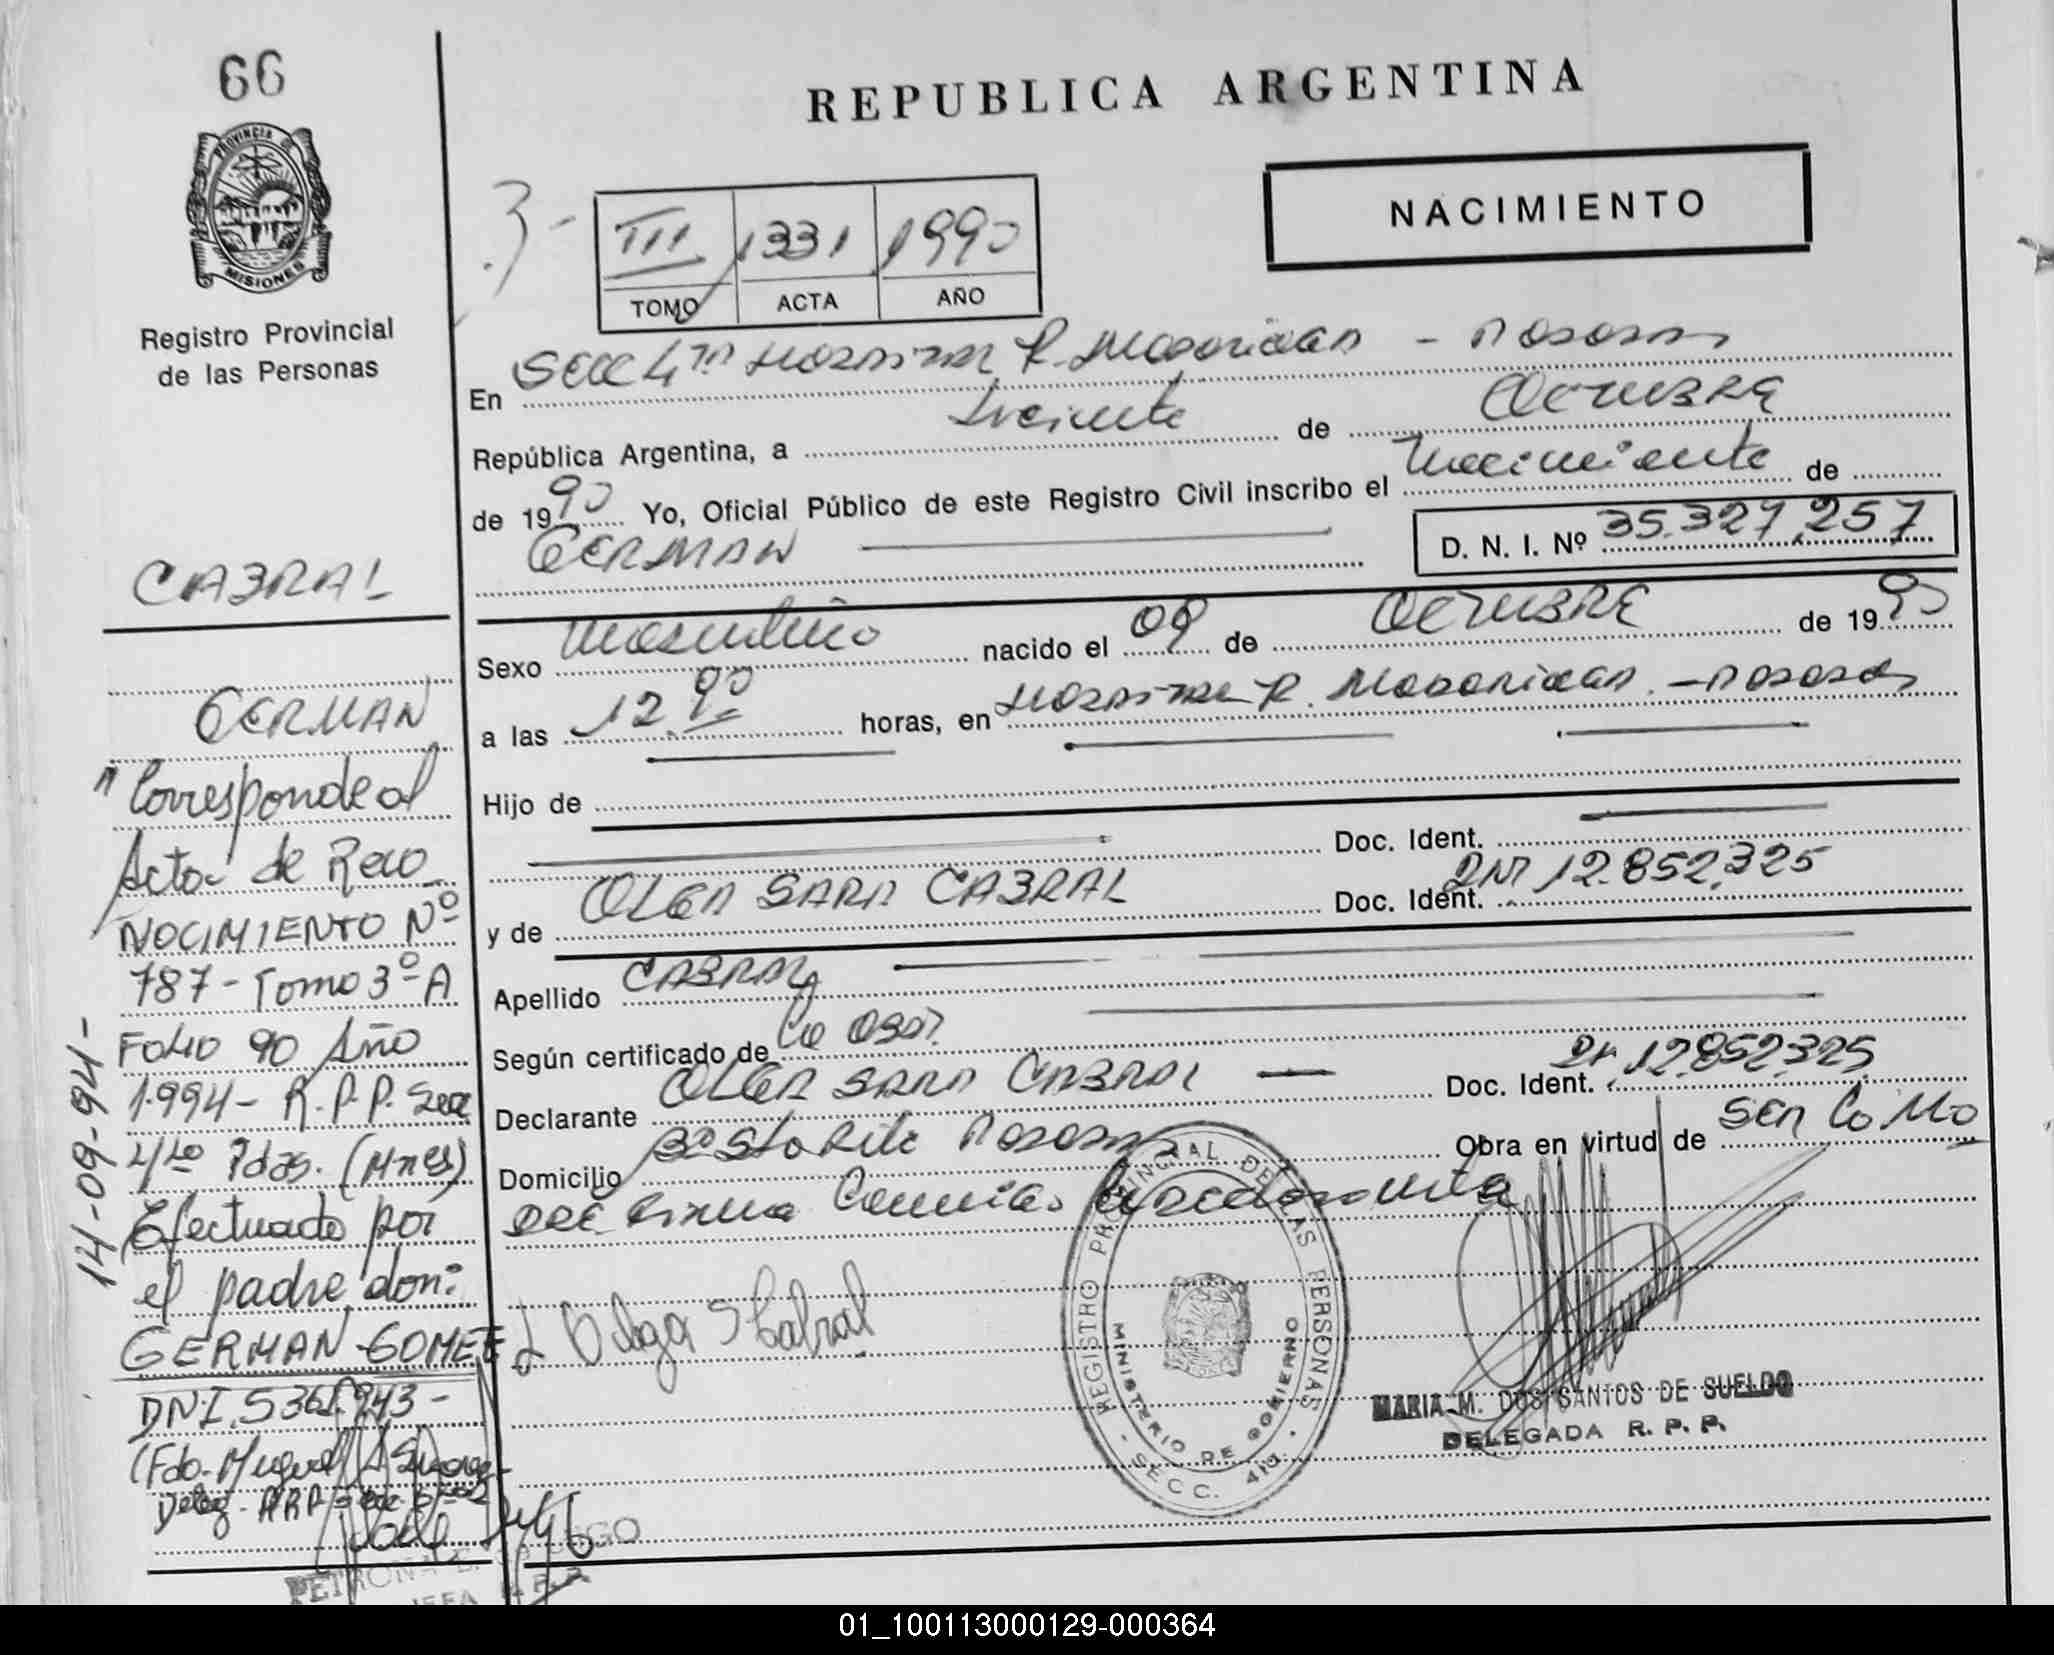 66
PROVINCIA DE
MISIONES
Registro Provincial
de las Personas
REPUBLICA ARGENTINA
NACIMIENTO
3-
III 1331 1990
TOMO ACTA AÑO
En Secc 4ta Hospital R. Madariaga - Posadas
República Argentina, a veinte de OCTUBRE
de 1990 Yo, Oficial Público de este Registro Civil inscribo el Nacimiento de
GERMAN
D. N. I. Nº 35.327.257
Sexo Masculino nacido el 09 de OCTUBRE de 1990
a las 12.00 horas, en Hospital R. Madariaga - Posadas
Hijo de
Doc. Ident.
y de OLGA SARA CABRAL Doc. Ident. DNI 12.852.325
Apellido CABRAL
Según certificado de
Declarante OLGA SARA CABRAL Doc. Ident. 12.852.325
Domicilio Bº Sta Rita Posadas Obra en virtud de ser la Mo
Olga S Cabral
REGISTRO PROVINCIAL DE LAS PERSONAS
MINISTERIO DE GOBIERNO
- SECC. 4ta. -
MARIA M. DOS SANTOS DE SUELDO
DELEGADA R. P. P.
CABRAL
GERMAN
Corresponde al
Acta de Reco_
NOCIMIENTO Nº
787 - Tomo 3º A
FOLIO 90 Año
1.994 - R.P.P. Secc
4ta Pdas. (Mnes)
Efectuado por
el padre don:
GERMAN GOMEZ
DNI. 5361.943 -
(Fdo. Miguel A
Deleg. RPP
14-09-94-
PETRONA
JEFA
01_100113000129-000364